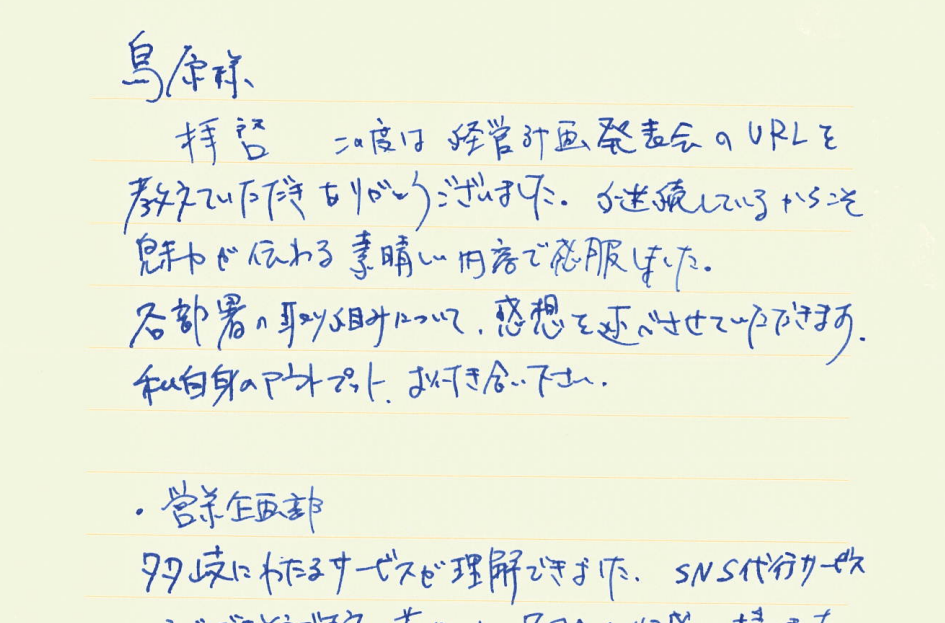 鳥原様、
拝啓 この度は経営計画発表会のURLを
教えていただきありがとうございました。継続しているからこそ
魅力が伝わる素晴しい内容で感服しました。
各部署の取り組みについて、感想を述べさせていただきます。
私自身のアウトプット、お付き合い下さい。
・営業企画部
多岐にわたるサービスが理解できました。SNS代行サービス